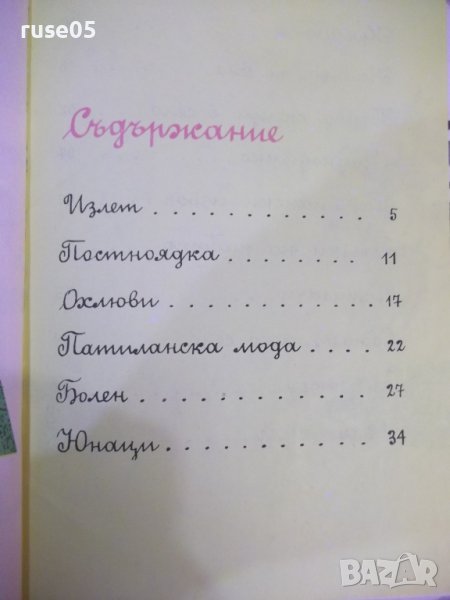 ruse05
Съдържание
Излет . . . . . . . . . . . . . 5
Постноядка . . . . . . . . 11
Охлюви . . . . . . . . . . . 17
Патиланска мода . . . . 22
Болен . . . . . . . . . . . . . 27
Юнаци . . . . . . . . . . . . 34
BAZAR
bg